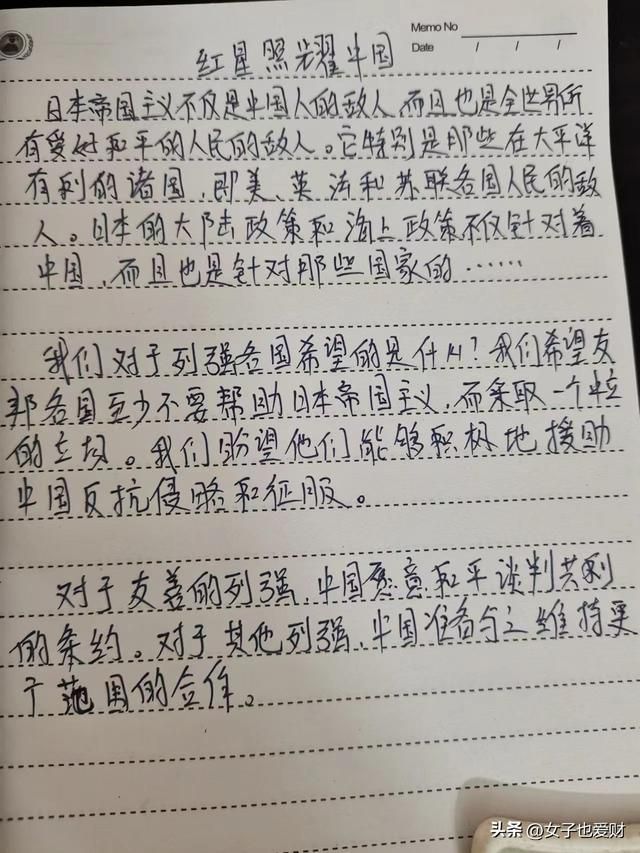 Memo No
Date / / /
红星照耀中国
日本帝国主义不仅是中国人的敌人,而且也是全世界所
有爱好和平的人民的敌人。它特别是那些在太平洋
有利的诸国,即美、英、法和苏联各国人民的敌
人。日本的大陆政策和海上政策不仅针对着
中国,而且也是针对那些国家的……
我们对于列强各国希望的是什么?我们希望友
邦各国至少不要帮助日本帝国主义,而采取一个中立
的立场。我们盼望他们能够积极地援助
中国反抗侵略和征服。
对于友善的列强,中国愿意和平谈判共利
的条约。对于其他列强,中国准备与之维持更
广范围的合作。
头条 @女子也爱财